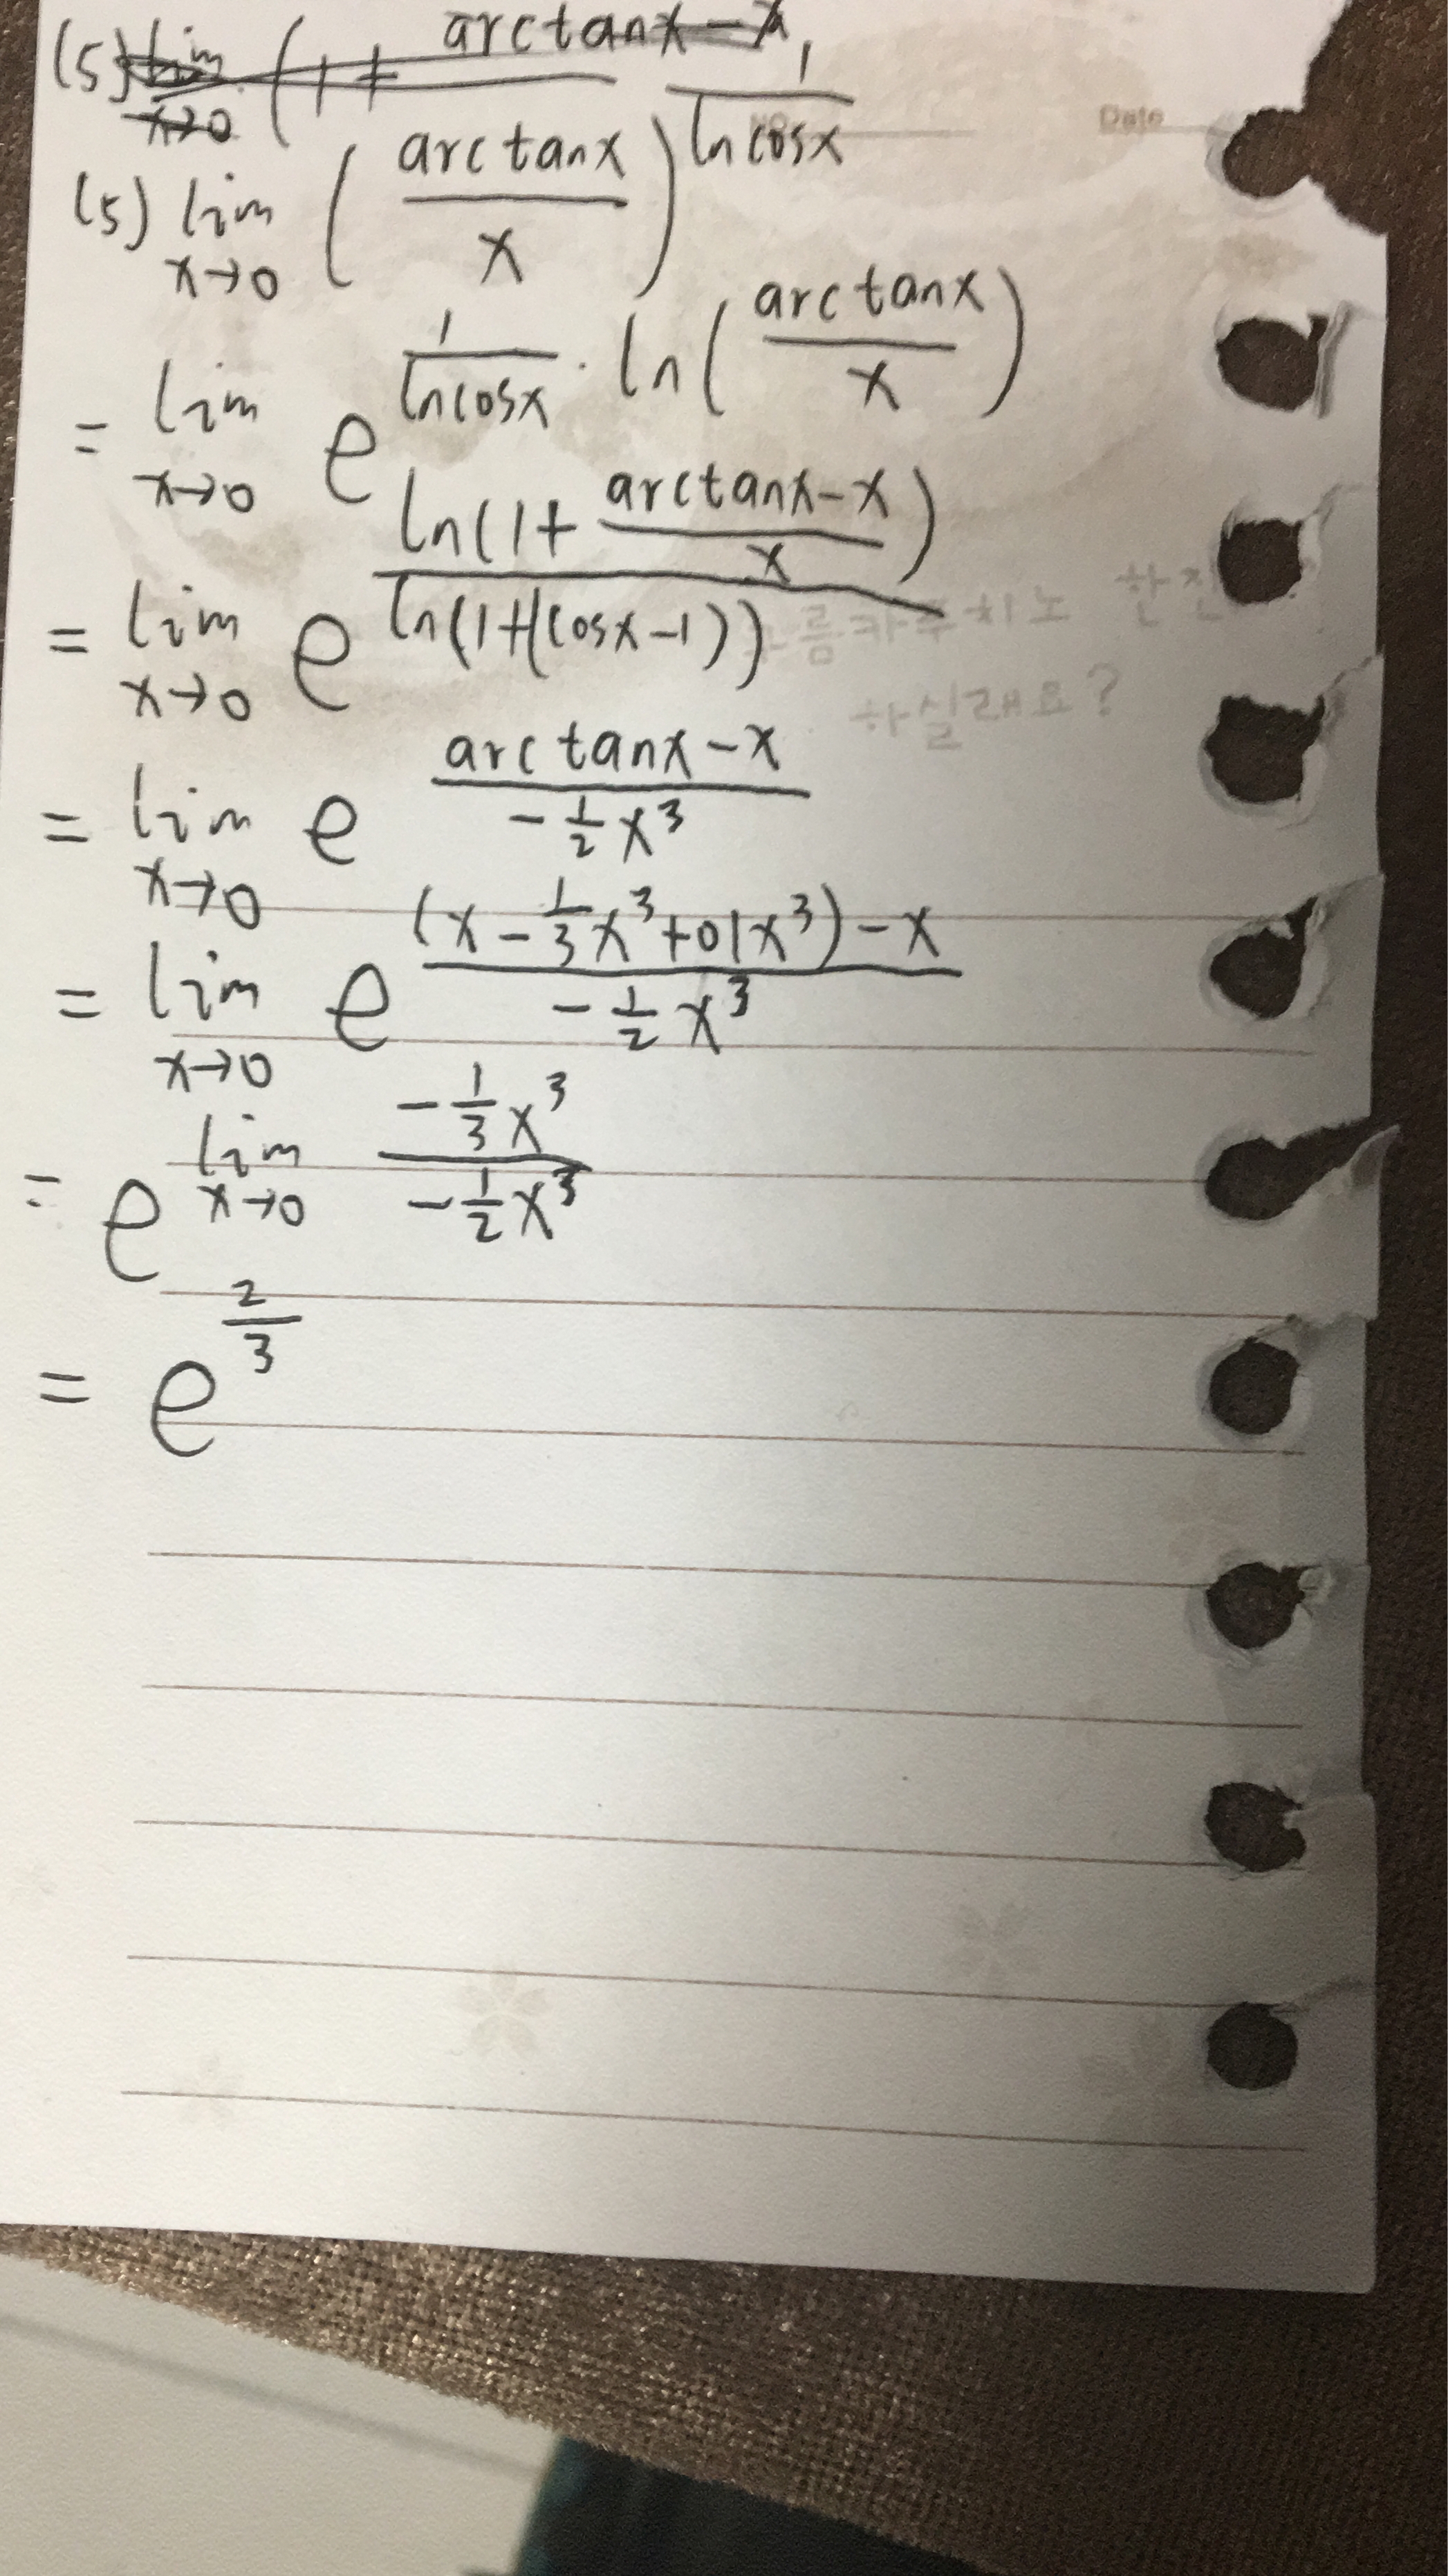 (5) lim x→0 (1 + arctanx - x
(5) lim x→0 (arctanx / x)^(1 / ln cosx)
= lim x→0 e^(1/lncosx · ln(arctanx / x))
= lim x→0 e^(ln(1+ (arctanx-x)/x) / ln(1+(cosx-1)))
= lim x→0 e^((arctanx-x) / (-1/2 x³))
= lim x→0 e^(((x - 1/3 x³ + o(x³) - x) / (-1/2 x³))
= e^(lim x→0 (-1/3 x³) / (-1/2 x³))
= e^(2/3)
Date
하실래요?